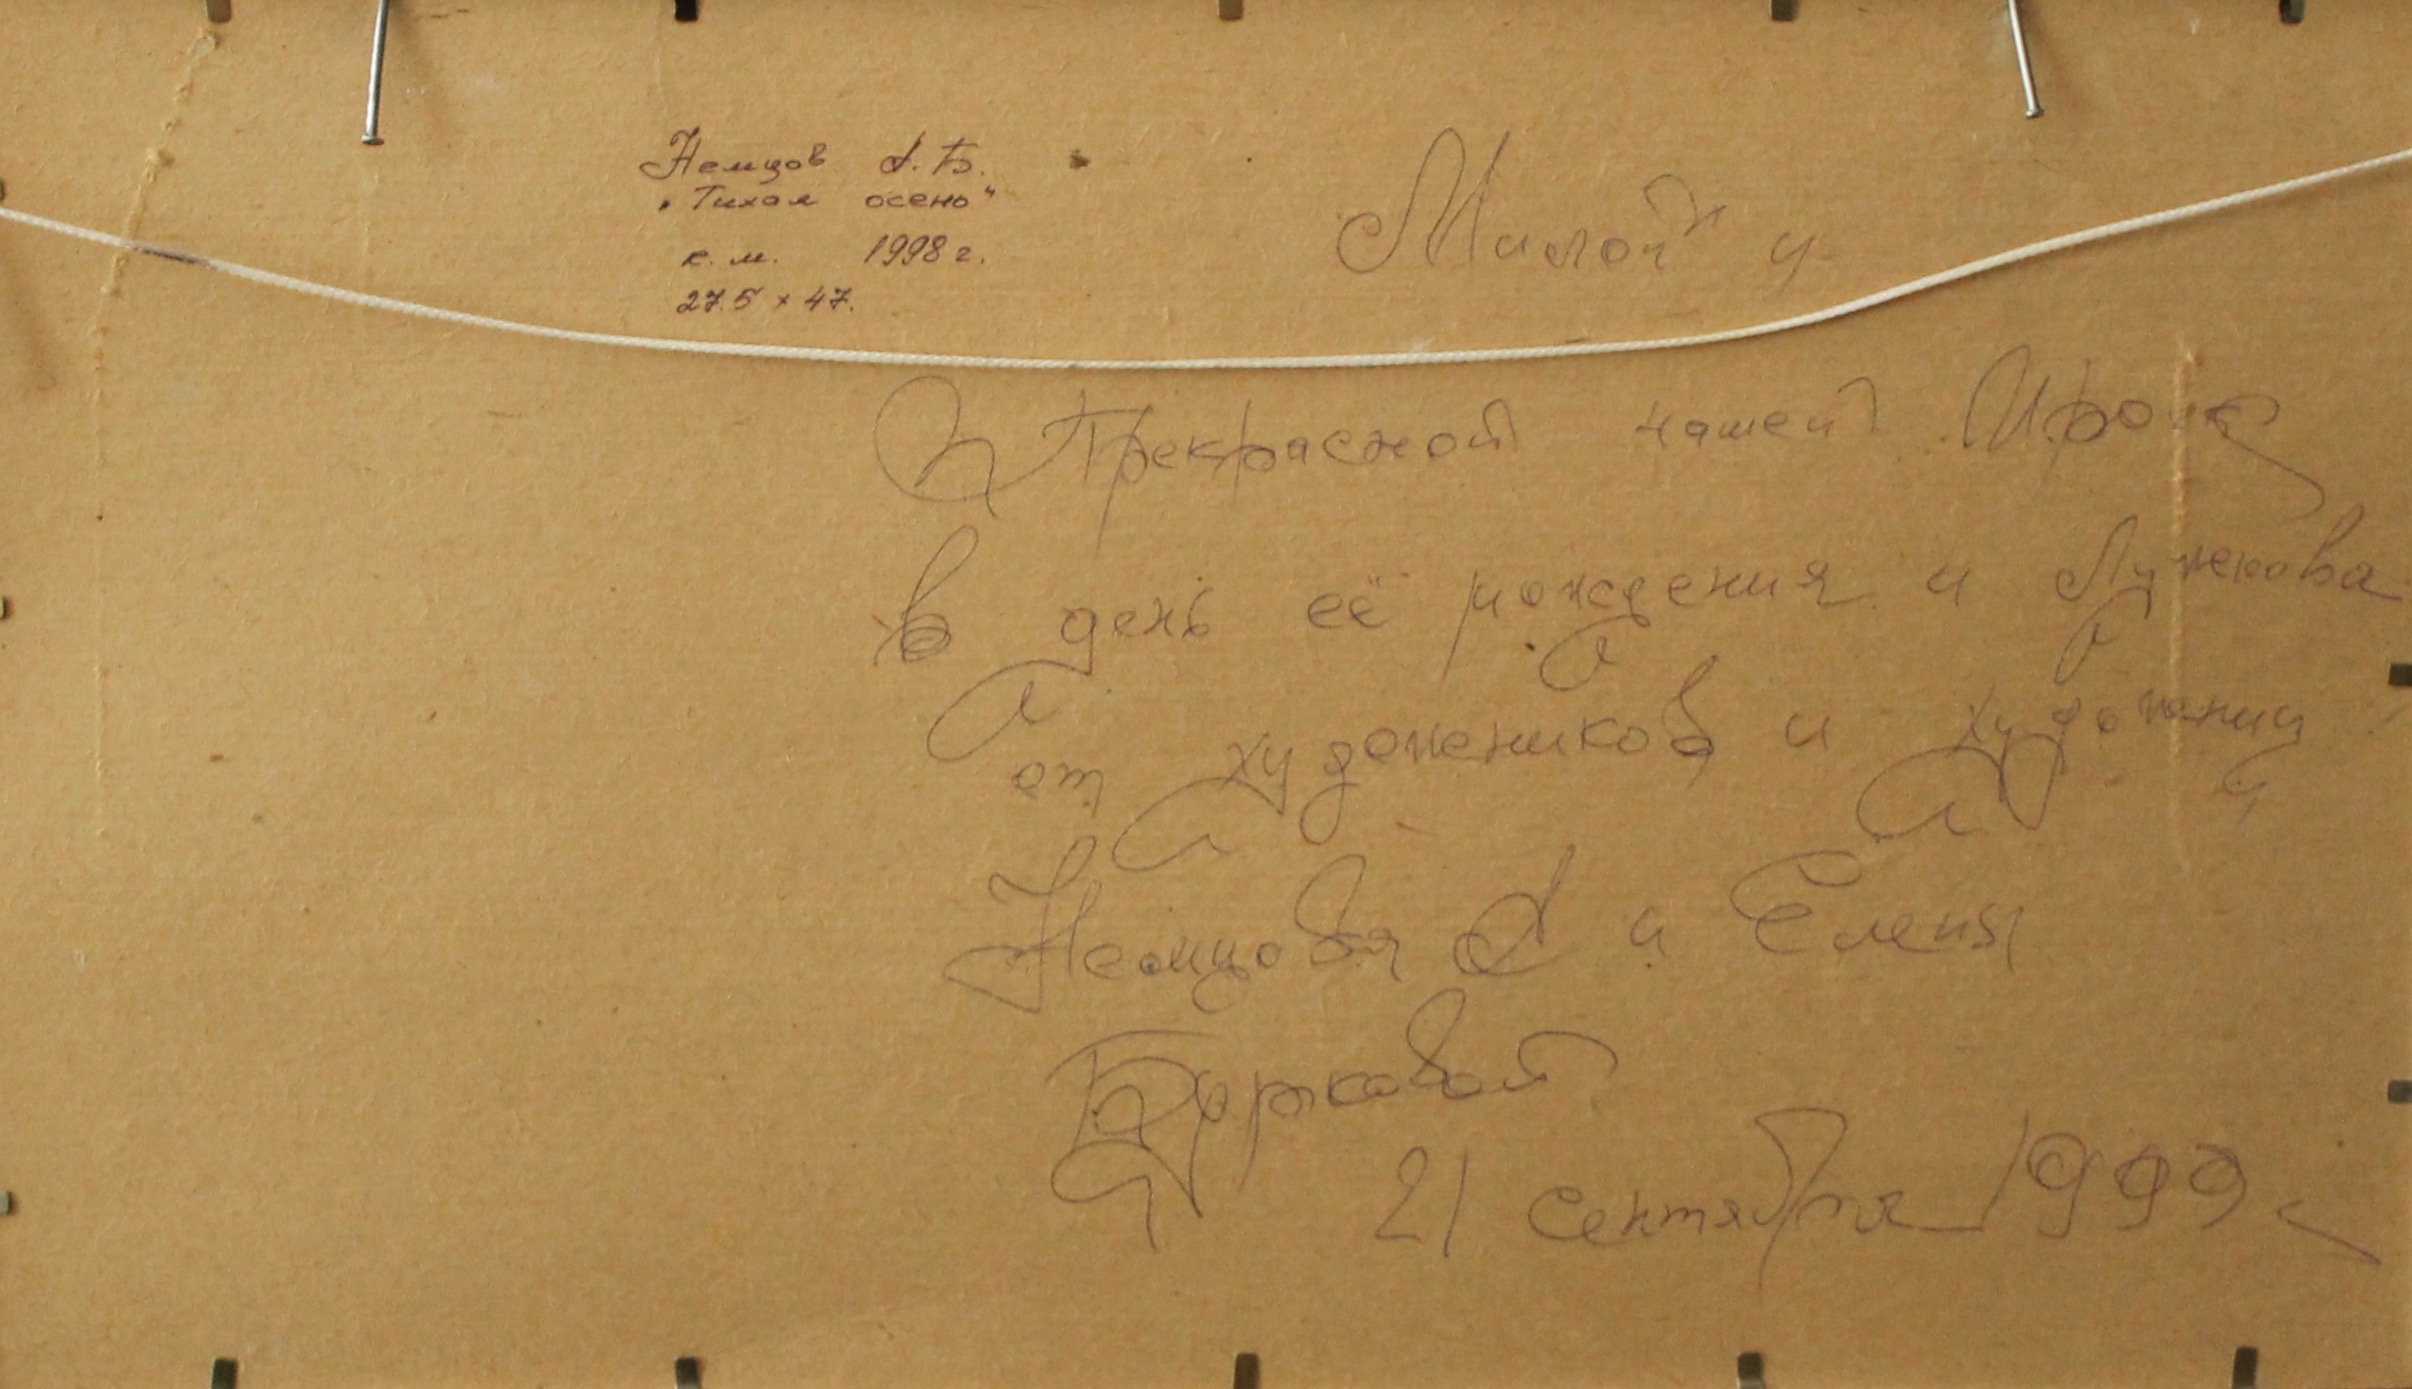 Немцов А.Б.
„Тихая осень"
к. м. 1998 г.
27.5 х 47.
Милой и
Прекрасной нашей Ирочке
в день её рождения и Лужкова
от художеников и художниц
Немцова А и Елены
Бурковой
21 сентября 1999 г